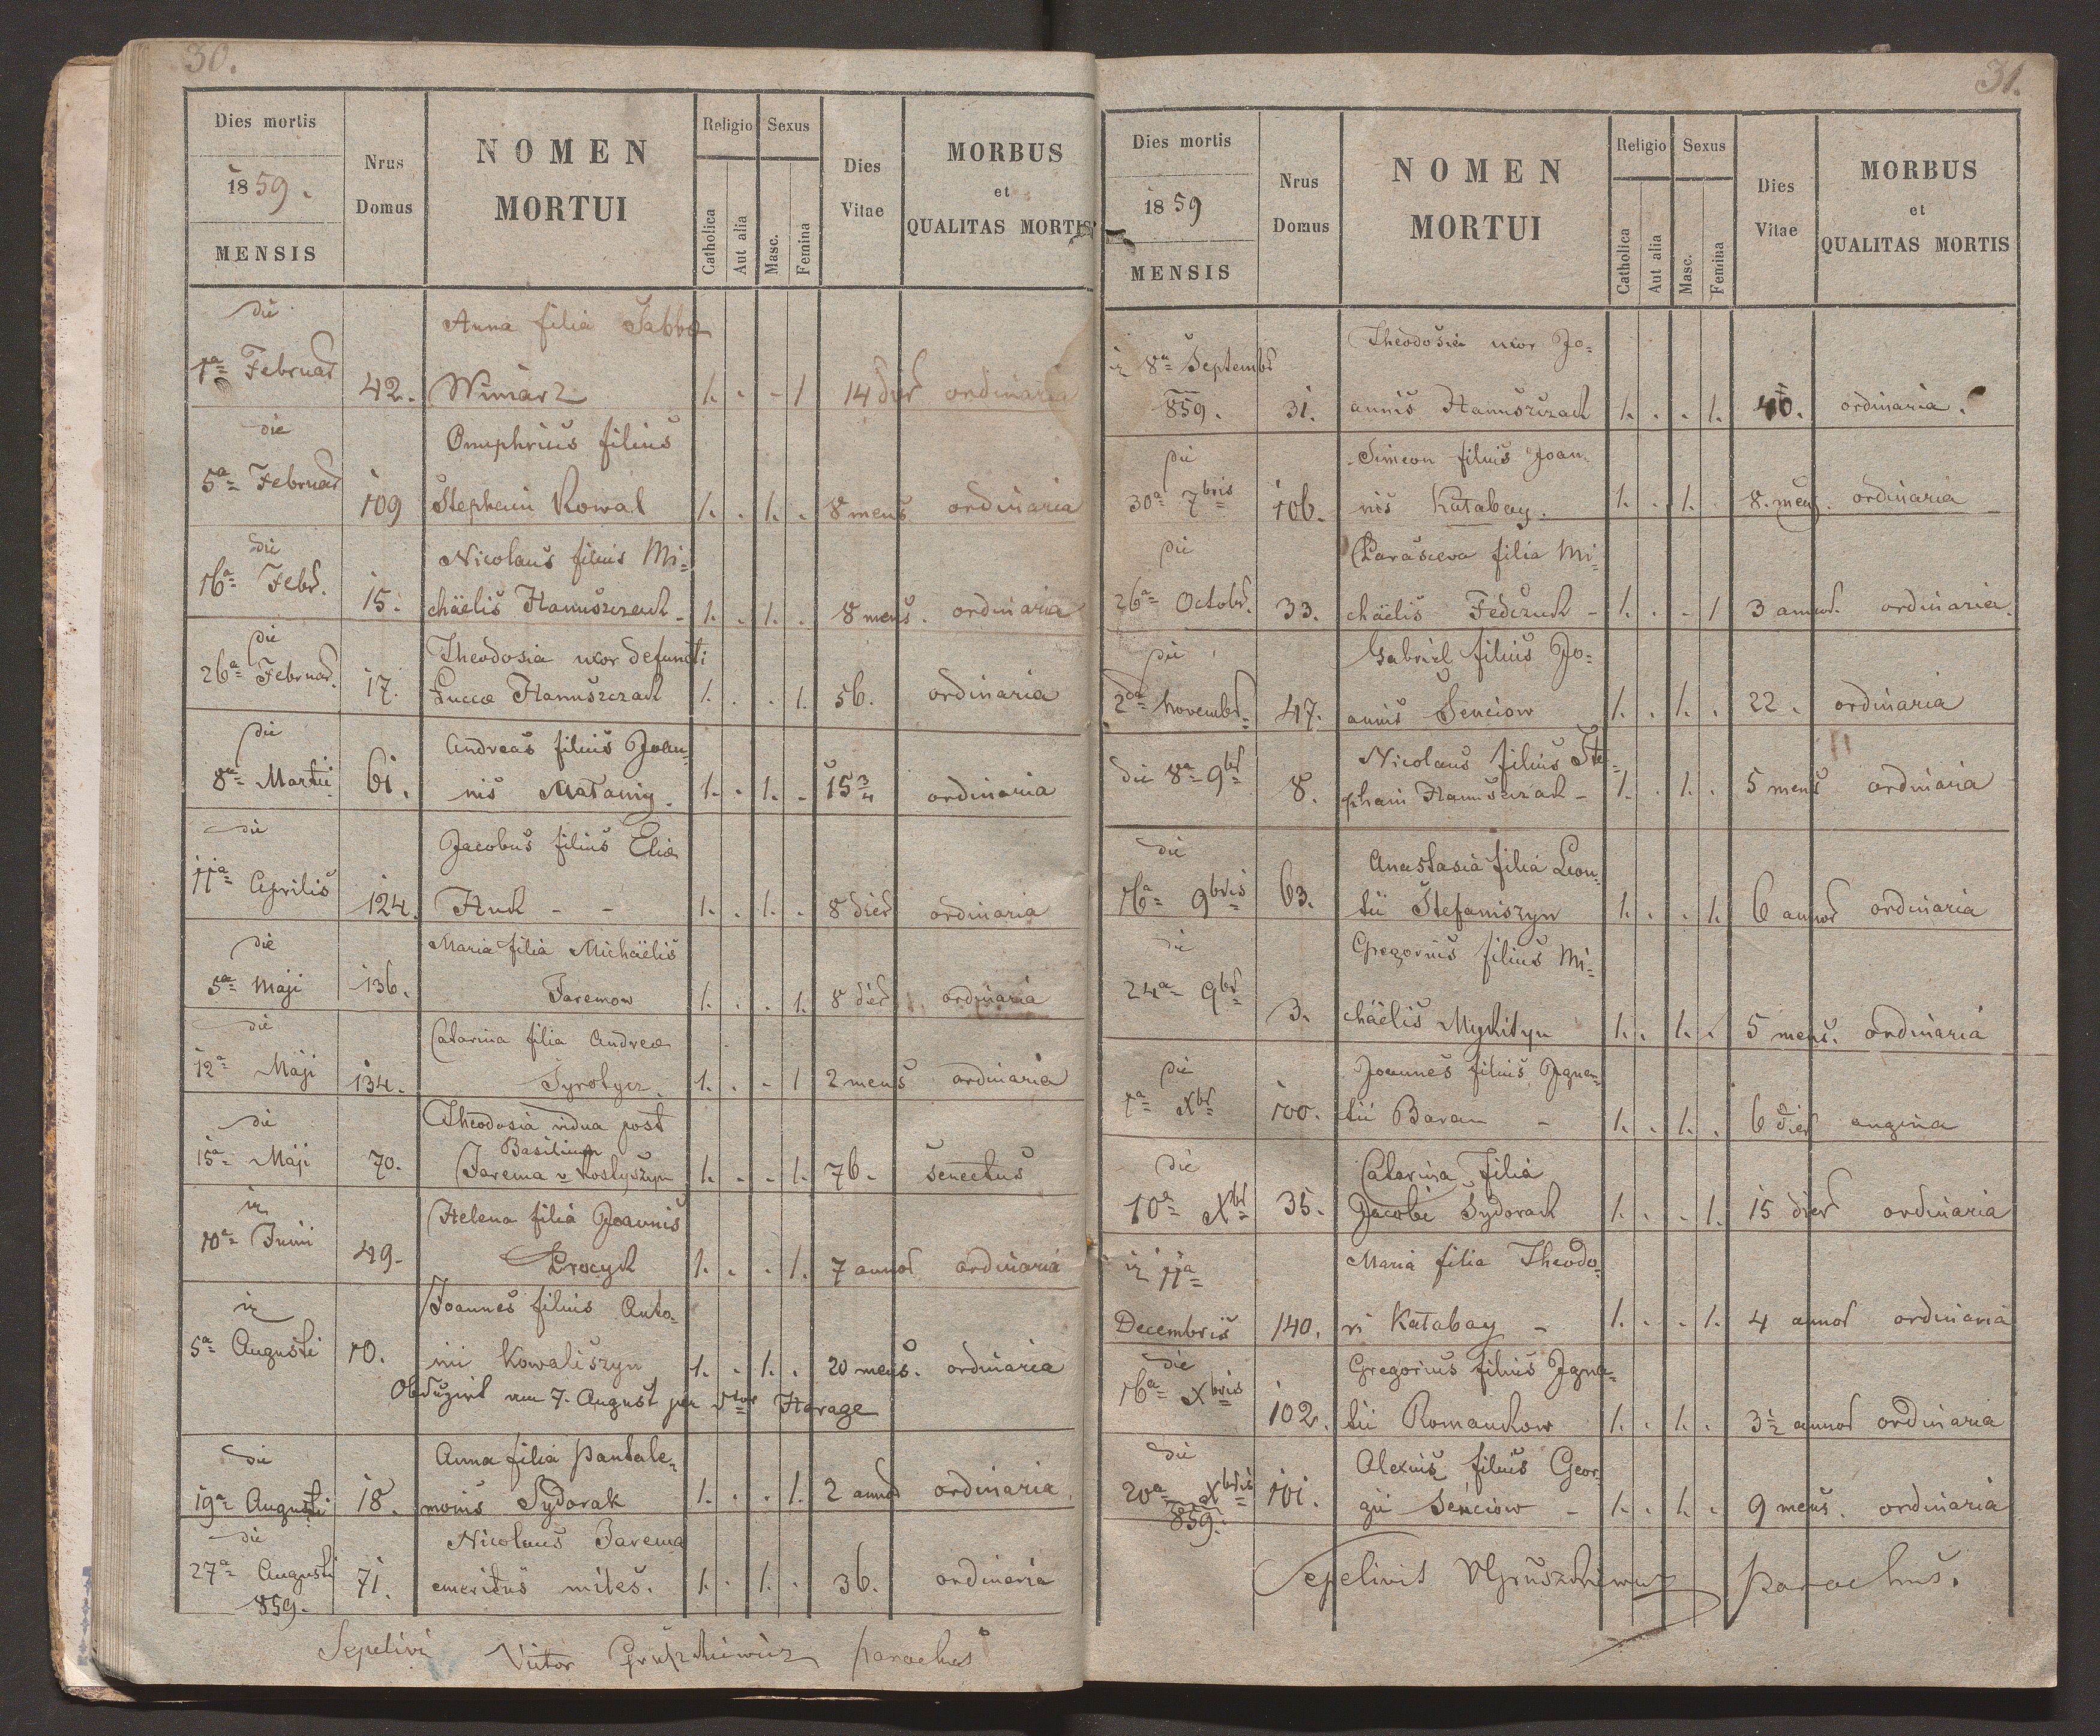 30.
Dies mortis
1859.
MENSIS
Nrus Domus
NOMEN MORTUI
Religio
Catholica
Aut alia
Sexus
Masc.
Femina
Dies Vitae
MORBUS et QUALITAS MORTIS
die
Anna filia Sabbæ
1ª Februar 42. Winiarz 1. . - 1 14 dier ordinaria
die
Onuphrius filius
5ª Februar 109 Stephani Kowal 1. . 1. . 8 mens ordinaria
die
Nicolaus filius Mi-
16ª Febr. 15. chäelis Hanuszczach 1. . 1. . 8 mens. ordinaria
die
Theodosia uxor defuncti
26ª Februar. 17. Luccæ Hanuszczach 1. . . 1. 56. ordinaria
die
Andreas filius Joan-
8ª Martii 61. nis 1. . 1. . 15 3/4 ordinaria
die
Jacobus filius Eliæ
11ª Aprilis 124. Huk - - 1. . 1. . 8 dier ordinaria
die
Maria filia Michäelis
5ª Maji 136. Jaremow 1. . . 1. 8 dier ordinaria
die
Catarina filia Andreæ
12ª Maji 134. Syrotycz 1. . - 1 2 mens ordinaria
die
Theodosia vidua post
Basilium
15ª Maji 70. Jarema v Kostyszyn 1. . . 1. 76. senectus
Helena filia Joannis
10ª Junii 49. Procyk 1. . . 1. 7 annor ordinaria
Joannes filius Anto-
5ª Augusti 10. nii Kowaliszyn 1. . 1. . 20 mens. ordinaria
Obduzirt am 7. August per Harage
die
Anna filia Pantale-
19ª Augusti 18. monis Sydorak 1. . . 1. 2 annor ordinaria
die
Nicolaus Jarema
27ª Augusti 71. emeritus miles. 1. . 1. . 36. ordinaria
859.
Sepelivi Victor Gruszkiewicz parochus
31.
Dies mortis
1859
MENSIS
Nrus Domus
NOMEN MORTUI
Religio
Catholica
Aut alia
Sexus
Masc.
Femina
Dies Vitae
MORBUS et QUALITAS MORTIS
Theodosia uxor Jo-
8ª Septembr
859. 31. annis Hanuszczach 1. . . 1. 40. ordinaria.
die
Simeon filius Joan-
30ª 7bris 106. nis Katabay. 1. . 1. 8. mens. ordinaria
die
Parasceva filia Mi-
26ª Octobr. 33. chäelis Fedczuk - 1. . - 1 3 annor. ordinaria.
die
Gabriel filius Jo-
2da Novembr 47. annis Senciow 1. . 1. . 22. ordinaria
Nicolaus filius Ste-
die 8ª 9br 8. phani Hanuszczach - 1. . 1. . 5 mens ordinaria
die
Anastasia filia Leon-
16ª 9bris 63. tii Stefaniszyn 1. . . 1. 6 annor ordinaria
die
Gregorius filius Mi-
24ª 9br 3. chäelis Mykityn 1. . 1. . 5 mens. ordinaria
die
Joannes filius Igna-
1ª Xbr 100. tii Baran - 1. . 1. . 6 dier angina
die
Catarina filia
10ª Xbr 35. Jacobi Sydorach 1. . - 1. 15 dier ordinaria
11ª
Maria filia Theodo-
Decembris 140. ri Katabay - 1. . . 1. 4 annor ordinaria
die
Gregorius filius Igna-
16ª Xbris 102. tii Romankow 1. . 1. . 3½ annor ordinaria
die
Alexius filius Geor-
20ª Xbris 101. gii Senciow - 1. . 1. . 9 mens. ordinaria
859.
Sepelivit VGruszkiewicz parochus.